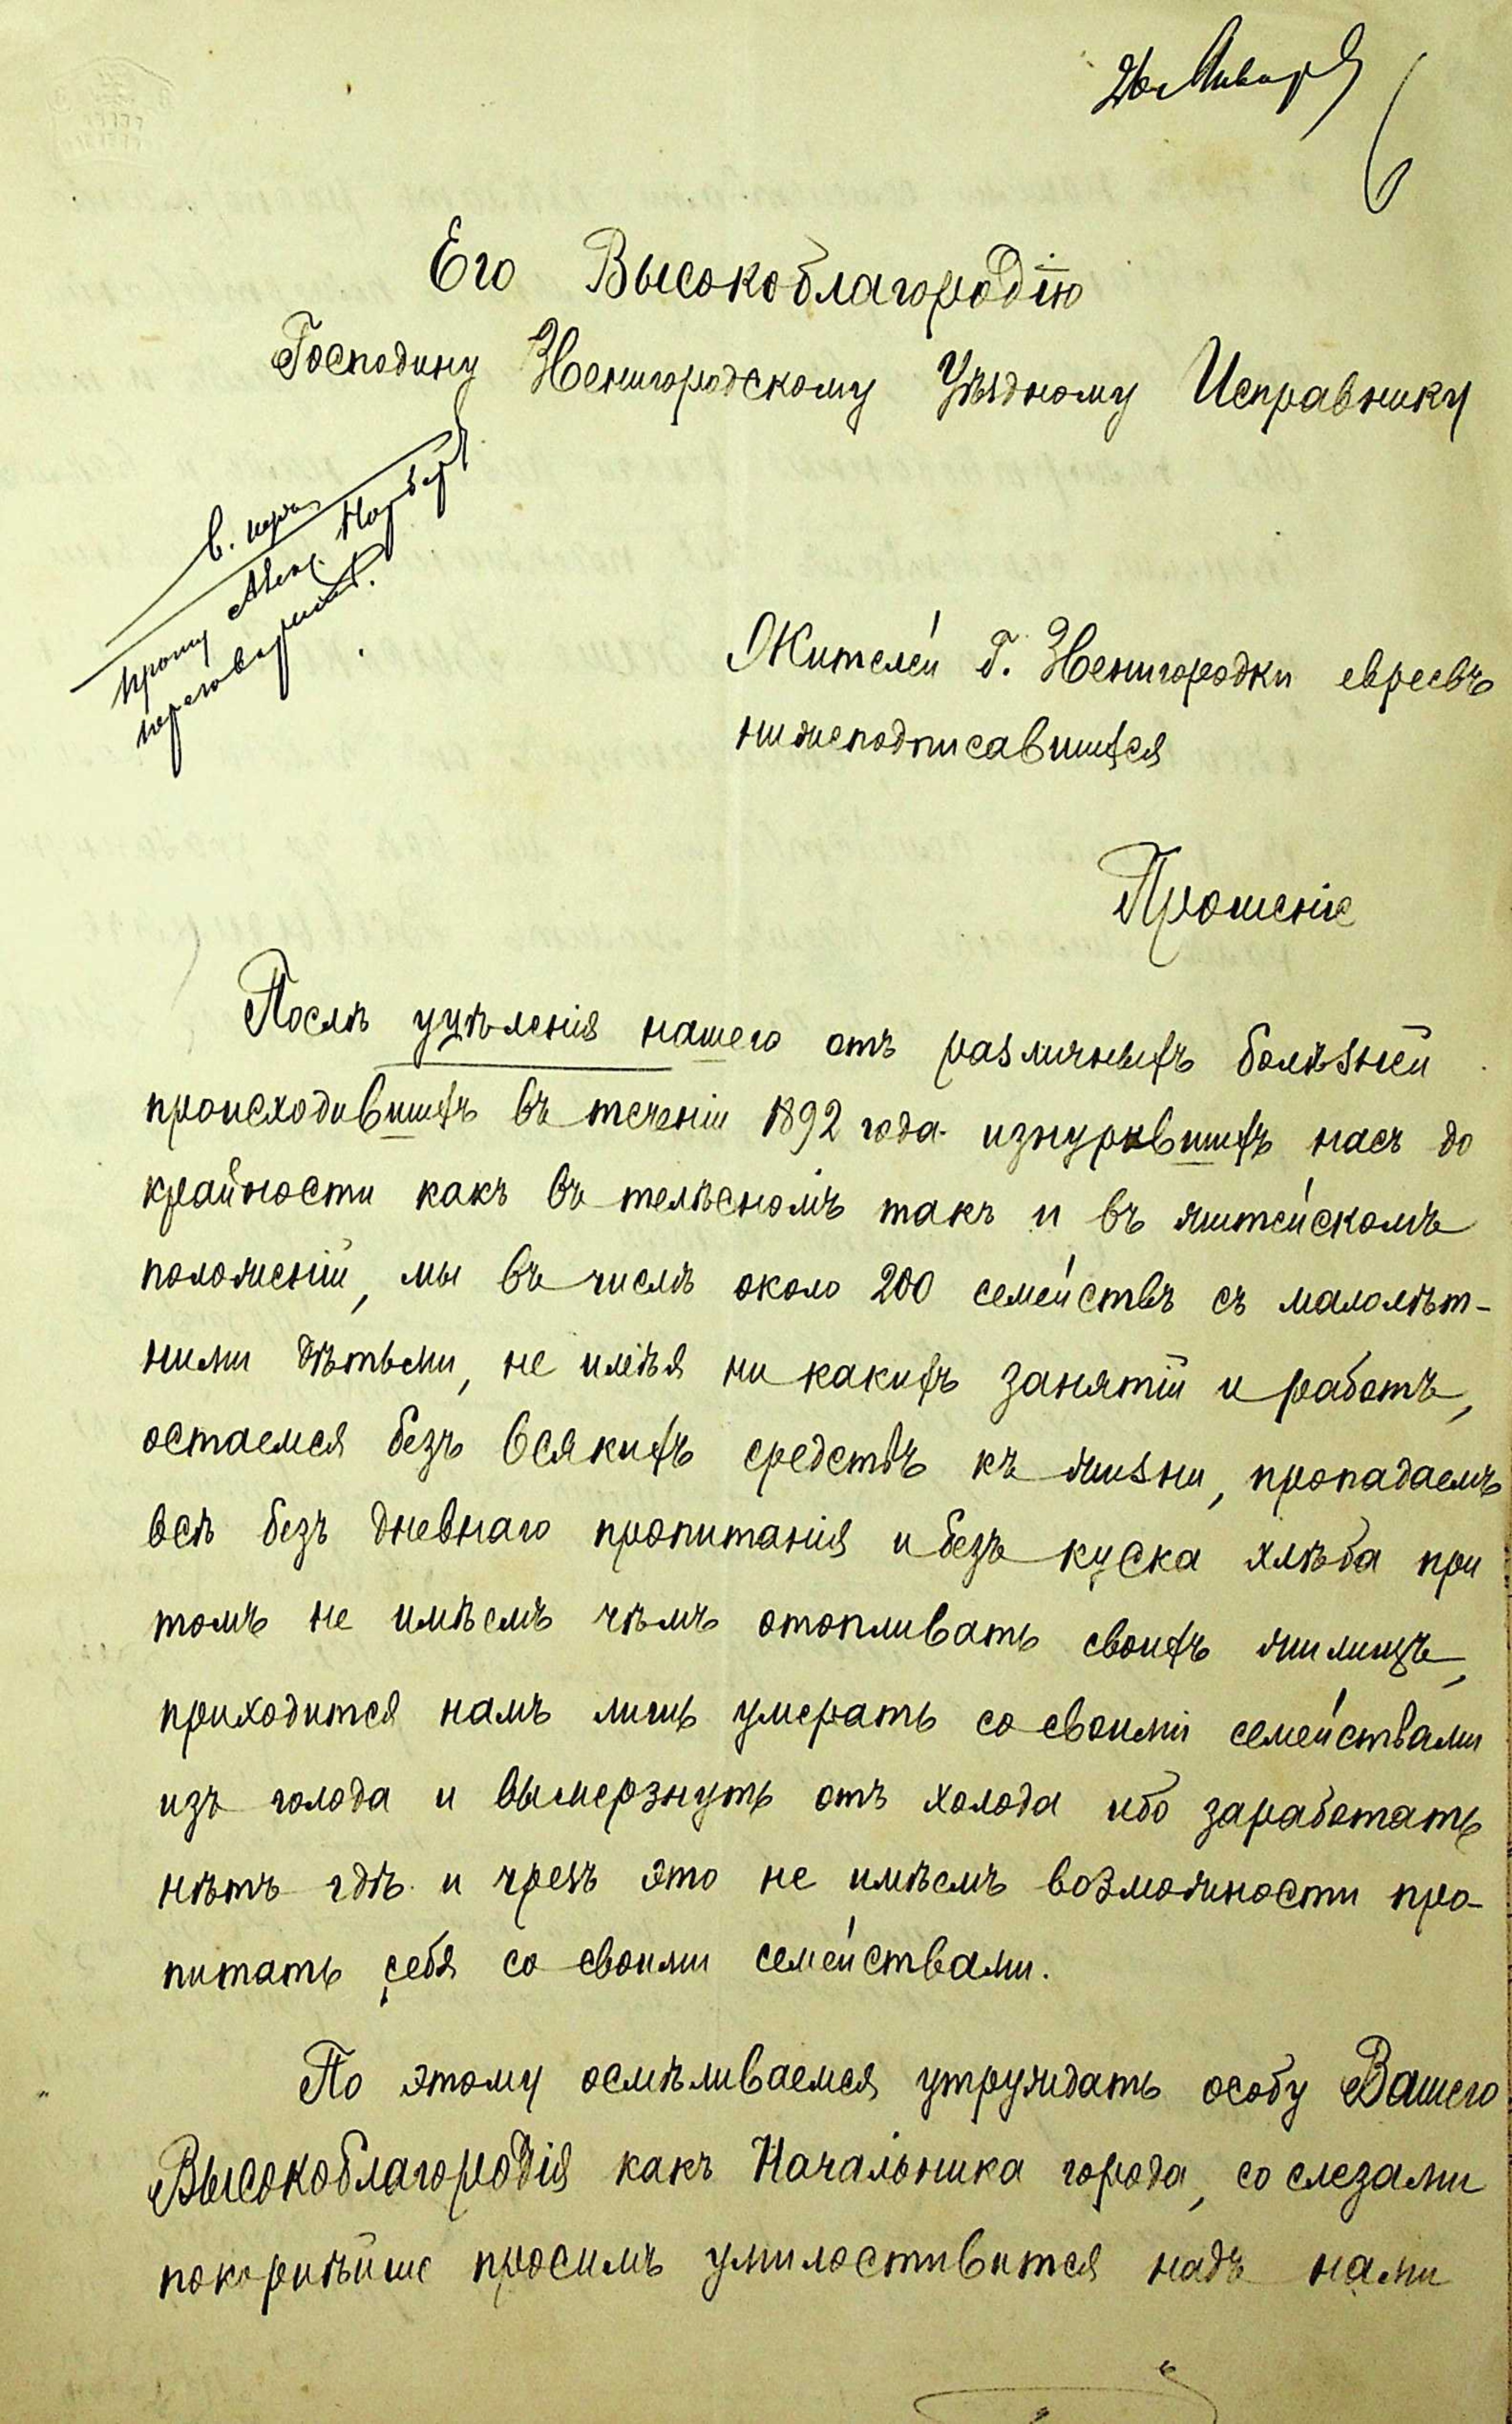 26 Января
Его Высокоблагородію
Господину Звенигородскому Уѣздному Исправнику
Прошу
переговорить.
Жителей г. Звенигородки евреевъ
нижеподписавшихся
Прошеніе
Послѣ уцѣленія нашего отъ различныхъ болѣзней
происходившихъ въ теченіи 1892 года изнурившихъ насъ до
крайности какъ въ телѣсномъ такъ и въ житейскомъ
положеніи, мы въ числѣ около 200 семействъ съ малолѣт-
ними дѣтьми, не имѣя ни какихъ занятій и работъ,
остаемся безъ всякихъ средствъ къ жизни, пропадаемъ
всѣ безъ дневнаго пропитанія и безъ куска хлѣба при
томъ не имѣемъ чѣмъ отопливать своихъ жилищъ,
приходится намъ лишь умерать со своими семействами
изъ голода и вымерзнуть отъ холода ибо заработать
нѣтъ гдѣ и чрезъ это не имѣемъ возможности про-
питать себя со своими семействами.
По этому осмѣливаемся утруждать особу Вашего
Высокоблагородія какъ Начальника города, со слезами
покорнѣйше просимъ умилостивится надъ нами